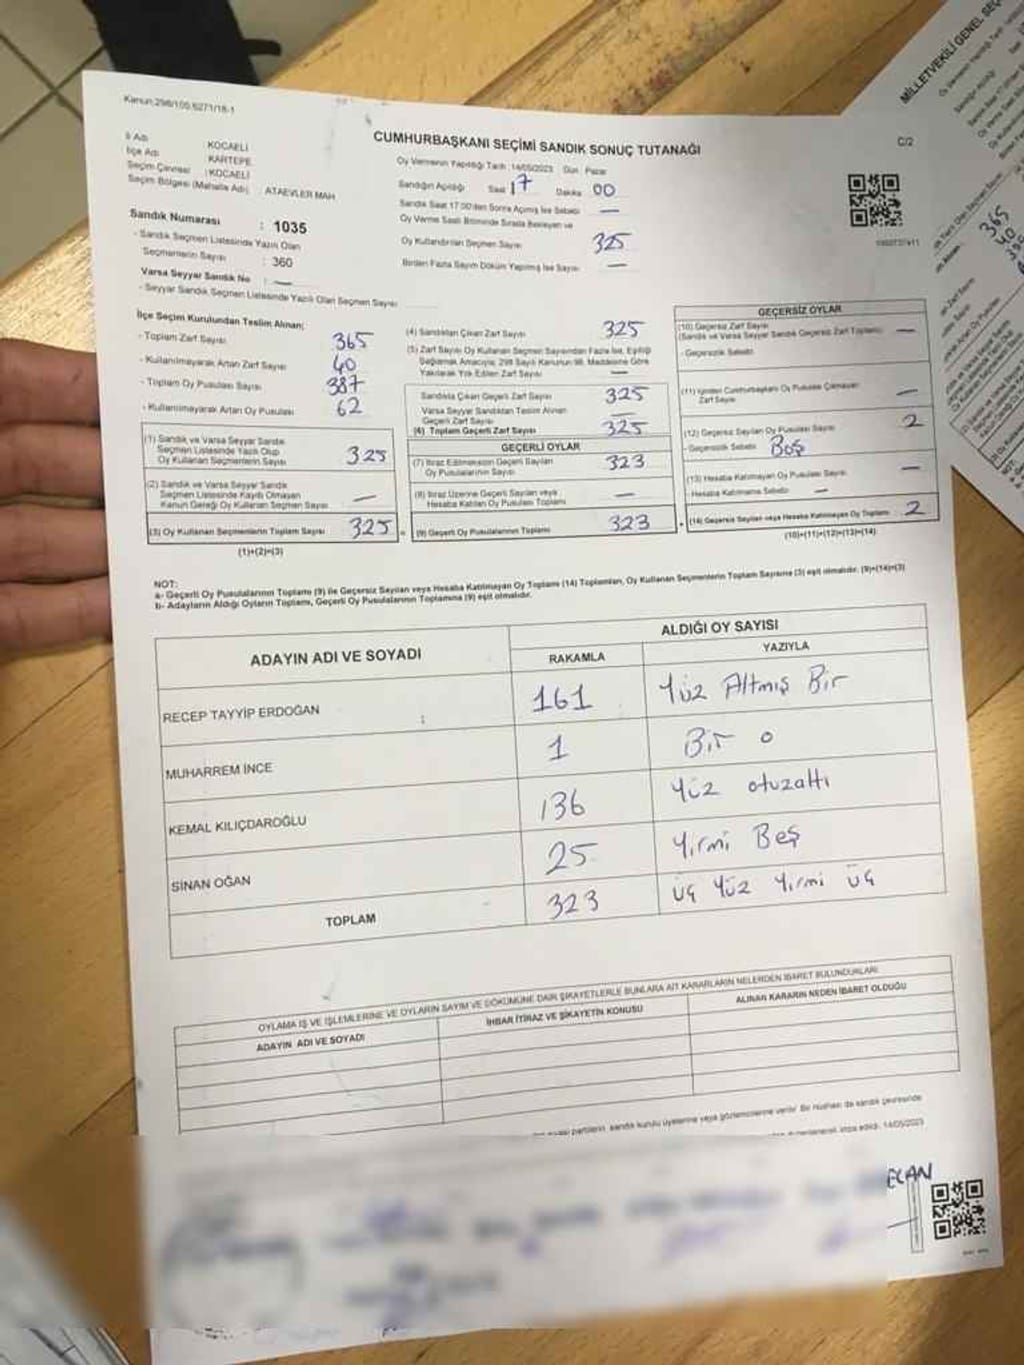 Kanun:298/105,6271/18-1
CUMHURBAŞKANI SEÇİMİ SANDIK SONUÇ TUTANAĞI
C/2
İl Adı : KOCAELİ
İlçe Adı : KARTEPE
Seçim Çevresi : KOCAELİ
Seçim Bölgesi (Mahalle Adı) : ATAEVLER MAH
Sandık Numarası : 1035
- Sandık Seçmen Listesinde Yazılı Olan
Seçmenlerin Sayısı : 360
Varsa Seyyar Sandık No : —
- Seyyar Sandık Seçmen Listesinde Yazılı Olan Seçmen Sayısı
Oy Vermenin Yapıldığı Tarih 14/05/2023 Gün Pazar
Sandığın Açıldığı Saat 17 Dakika 00
Sandık Saat 17:00'den Sonra Açılmış İse Sebebi —
Oy Verme Saati Bitiminde Sırada Bekleyen ve
Oy Kullandırılan Seçmen Sayısı 325
Birden Fazla Sayım Döküm Yapılmış İse Sayısı —
İlçe Seçim Kurulundan Teslim Alınan;
- Toplam Zarf Sayısı 365
- Kullanılmayarak Artan Zarf Sayısı 40
- Toplam Oy Pusulası Sayısı 387
- Kullanılmayarak Artan Oy Pusulası 62
(1) Sandık ve Varsa Seyyar Sandık
Seçmen Listesinde Yazılı Olup
Oy Kullanan Seçmenlerin Sayısı 325
(2) Sandık ve Varsa Seyyar Sandık
Seçmen Listesinde Kayıtlı Olmayan
Kanun Gereği Oy Kullanan Seçmen Sayısı —
(3) Oy Kullanan Seçmenlerin Toplam Sayısı 325
(1)+(2)=(3)
(4) Sandıktan Çıkan Zarf Sayısı 325
(5) Zarf Sayısı Oy Kullanan Seçmen Sayısından Fazla İse, Eşitliği
Sağlamak Amacıyla, 298 Sayılı Kanunun 98. Maddesine Göre
Yakılarak Yok Edilen Zarf Sayısı —
Sandıkta Çıkan Geçerli Zarf Sayısı 325
Varsa Seyyar Sandıktan Teslim Alınan
Geçerli Zarf Sayısı —
(6) Toplam Geçerli Zarf Sayısı 325
GEÇERLİ OYLAR
(7) İtiraz Edilmeksizin Geçerli Sayılan
Oy Pusulalarının Sayısı 323
(8) İtiraz Üzerine Geçerli Sayılan veya
Hesaba Katılan Oy Pusulası Toplamı —
(9) Geçerli Oy Pusulalarının Toplamı 323
GEÇERSİZ OYLAR
(10) Geçersiz Zarf Sayısı
(Sandık ve Varsa Seyyar Sandık Geçersiz Zarf Toplamı) —
- Geçersizlik Sebebi:
(11) İçinden Cumhurbaşkanı Oy Pusulası Çıkmayan
Zarf Sayısı —
(12) Geçersiz Sayılan Oy Pusulası Sayısı 2
- Geçersizlik Sebebi: Boş
(13) Hesaba Katılmayan Oy Pusulası Sayısı —
- Hesaba Katılmama Sebebi: —
(14) Geçersiz Sayılan veya Hesaba Katılmayan Oy Toplamı 2
(10)+(11)+(12)+(13)=(14)
NOT:
a- Geçerli Oy Pusulalarının Toplamı (9) ile Geçersiz Sayılan veya Hesaba Katılmayan Oy Toplamı (14) Toplamları, Oy Kullanan Seçmenlerin Toplam Sayısına (3) eşit olmalıdır. (9)+(14)=(3)
b- Adayların Aldığı Oyların Toplamı, Geçerli Oy Pusulalarının Toplamına (9) eşit olmalıdır.
ADAYIN ADI VE SOYADI
ALDIĞI OY SAYISI
RAKAMLA YAZIYLA
RECEP TAYYİP ERDOĞAN 161 Yüz Altmış Bir
MUHARREM İNCE 1 Bir o
KEMAL KILIÇDAROĞLU 136 Yüz otuzaltı
SİNAN OĞAN 25 Yirmi Beş
TOPLAM 323 üç yüz yirmi üç
OYLAMA İŞ VE İŞLEMLERİNE VE OYLARIN SAYIM VE DÖKÜMÜNE DAİR ŞİKAYETLERLE BUNLARA AİT KARARLARIN NELERDEN İBARET BULUNDUKLARI
ADAYIN ADI VE SOYADI
İHBAR İTİRAZ VE ŞİKAYETİN KONUSU
ALINAN KARARIN NEDEN İBARET OLDUĞU
partilerin sandık kurulu üyelerine veya gözlemcilerine verilir. Bir nüshası da sandık çevresinde
imza edildi. 14/05/2023
ECAN
MİLLETVEKİLİ GENEL SEÇ
365
40